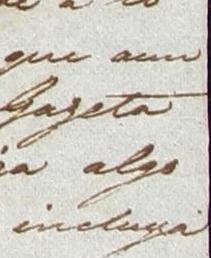 que aun
Gazeta
algo
incluya